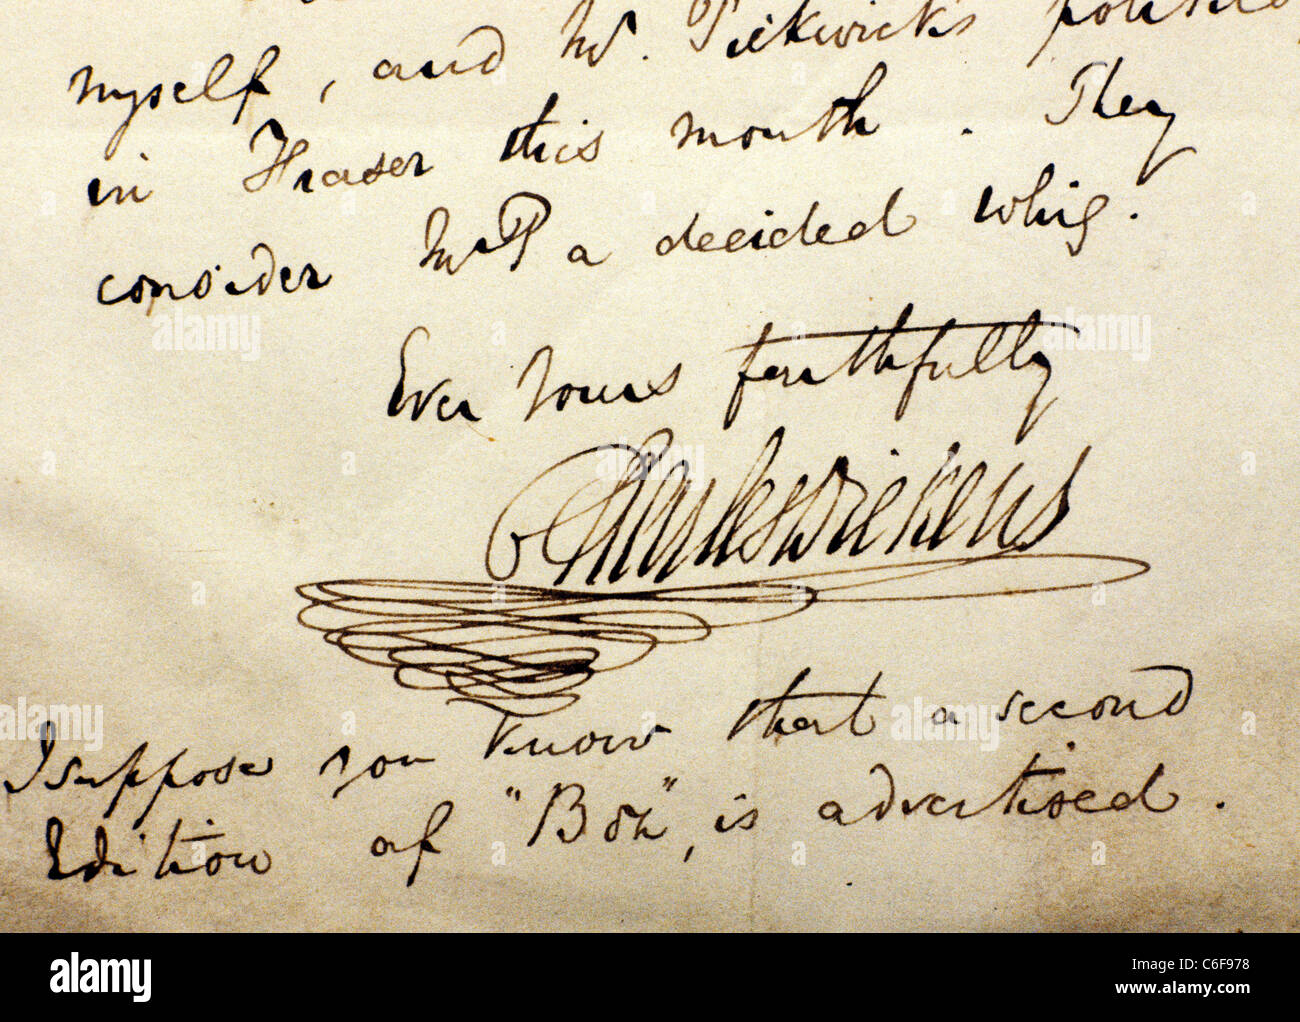 myself, and Mr. Pickwick's politics
in Fraser this month. They
consider Mr P a decided Whig.
Ever Yours faithfully
Charles Dickens
I suppose you know that a second
Edition of "Boz", is advertised.
alamy
Image ID: C6F978
www.alamy.com